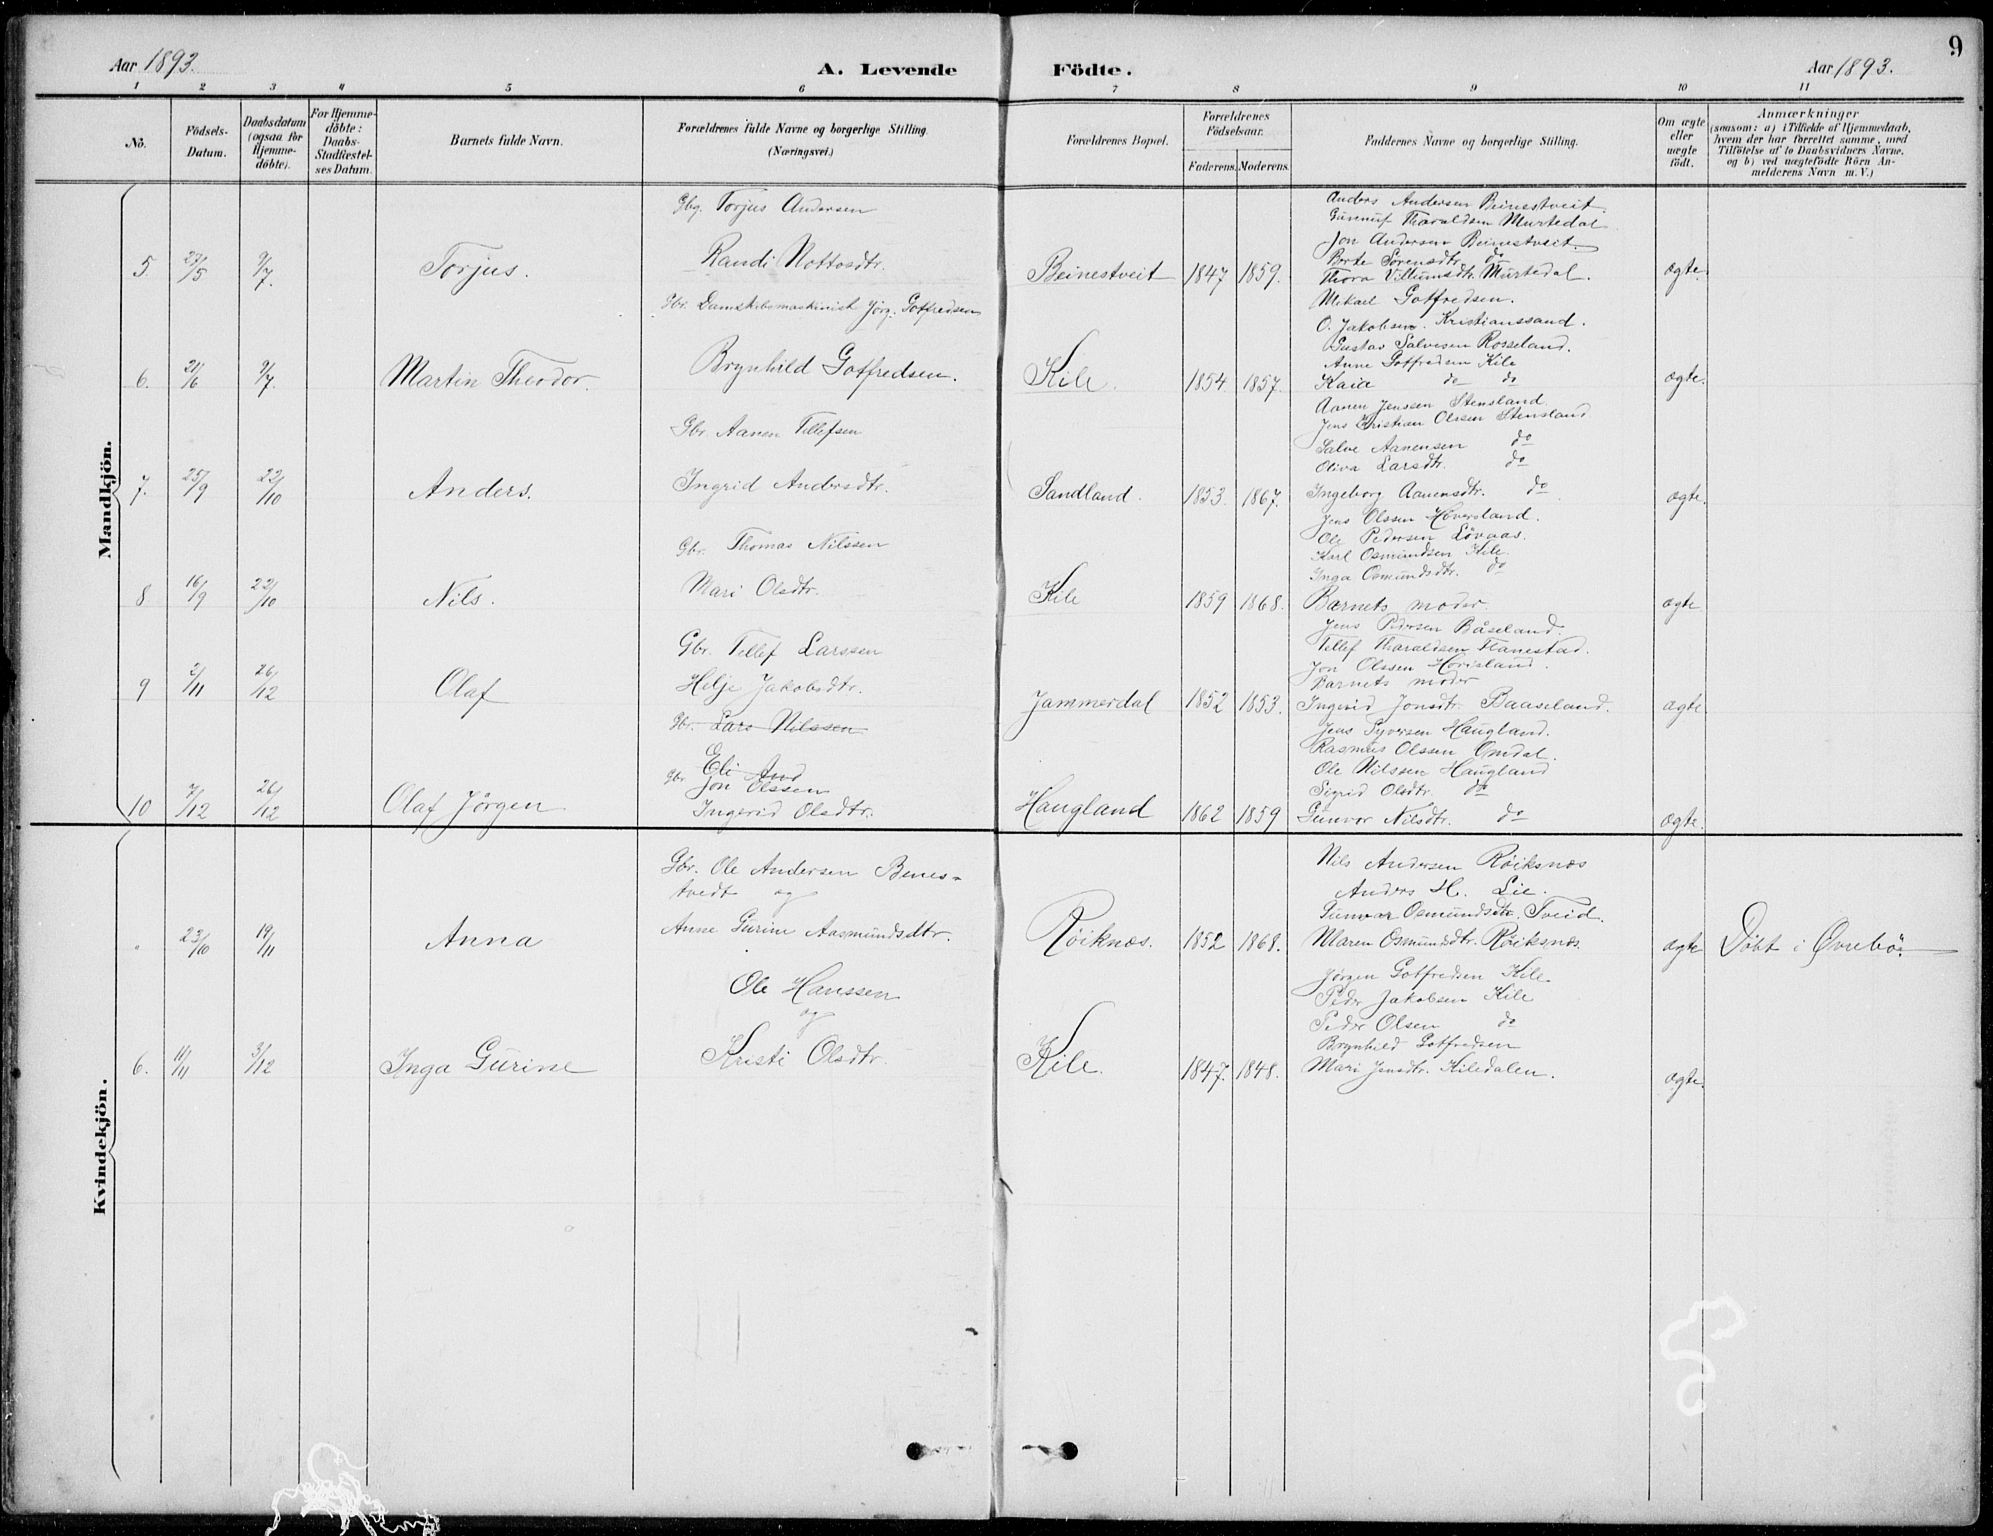 9
Aar 1893.
A. Levende Födte.
Aar 1893.
1 2 3 4 5 6 7 8 9 10 11
No.
Födsels-Datum.
Daabsdatum (ogsaa for Hjemme-döbte).
For Hjemme-döbte: Daabs-Stadfæstel-ses Datum.
Barnets fulde Navn.
Forældrenes fulde Navne og borgerlige Stilling.
(Næringsvei.)
Forældrenes Bopæl.
Forældrenes Födselsaar.
Faderens. Moderens.
Faddernes Navne og borgerlige Stilling.
Om ægte eller uægte födt.
Anmærkninger
(saasom: a) i Tilfælde af Hjemmedaab,
hvem der har forrettet samme, med
Tilföielse af to Daabsvidners Navne,
og b) ved uægtefödte Börn An-
melderens Navn m. V.)
Mandkjön.
Gbg. Torjus Andersen
Anders Andersen Beinestveit.
Gunnuf Tharaldsen Murtedal
Jon Andersen Beinestveit.
Berte Sørensdtr. do
5. 27/5 9/7. Torjus. Randi Nottosdtr. Beinestveit 1847 1859. Thora Villumsdtr. Murtedal. ægte.
Gbr. Damskibsmaskinist Jörg. Gotfredsen
Mikael Gotfredsen.
O. Jakobsen. Kristianssand.
Gustav Salvesen Rosseland.
Anne Gotfredsen Kile
6. 21/6 9/7 Martin Theodor. Brynhild Gotfredsen. Kile. 1854 1857. Kaia do do ægte.
Gbr. Aanen Tellefsen
Aanen Jenssen Stensland
Jens Kristian Olssen Stensland
Salve Aanensen do
Oliva Larsdtr. do
7. 25/9 22/10 Anders. Ingrid Andersdtr. Sandland. 1853. 1867. Ingeborg Aanensdtr. do ægte.
Gbr. Thomas Nilssen
Jens Olssen Hoversland.
Ole Pedersen Lövaas.
Karl Osmundsen Kile.
Inga Osmundsdtr. do
8 16/9 22/10 Nils. Mari Olsdtr. Kile 1859 1868. Barnets moder. ægte
Gbr. Tellef Larssen
Jens Pedersen Båseland.
Tellef Tharaldsen Flanestad.
Jon Olssen Horisland.
Barnets moder
9 2/11 26/12 Olaf Helje Jakobsdtr. Jammerdal 1852 1853. Ingerid Jonsdtr. Baaseland. ægte
Gbr. Lars Nilssen
Eli And
Gbr Jon Olssen
Jens Syversen Haugland.
Rasmus Olssen Omdal.
Ole Nilssen Haugland
Sigrid Olsdtr. do
10 7/12 26/12 Olaf Jörgen Ingerid Olsdtr. Haugland 1862 1859 Gunvor Nilsdtr. do ægte.
Kvindekjön.
Gbr. Ole Andersen Benes-
tvedt og
Nils Andersen Röiksnæs
Anders H. Lie.
Gunvor Osmundsdtr. Tveid.
" 23/10 19/11 Anna Anne Gurine Aasmundsdtr. Röiknæs. 1852 1868. Maren Osmundsdtr. Röiksnæs. ægte Döbt i Øvrebö.
Ole Hanssen
og
Jörgen Gotfredsen Kile.
Peder Jakobsen Kile
Peder Olsen do
Brynhild Gotfredsen
6. 11/11 3/12 Inga Gurine Kristi Olsdtr. Kile. 1847. 1848. Mari Jensdtr. Kiledalen. ægte.